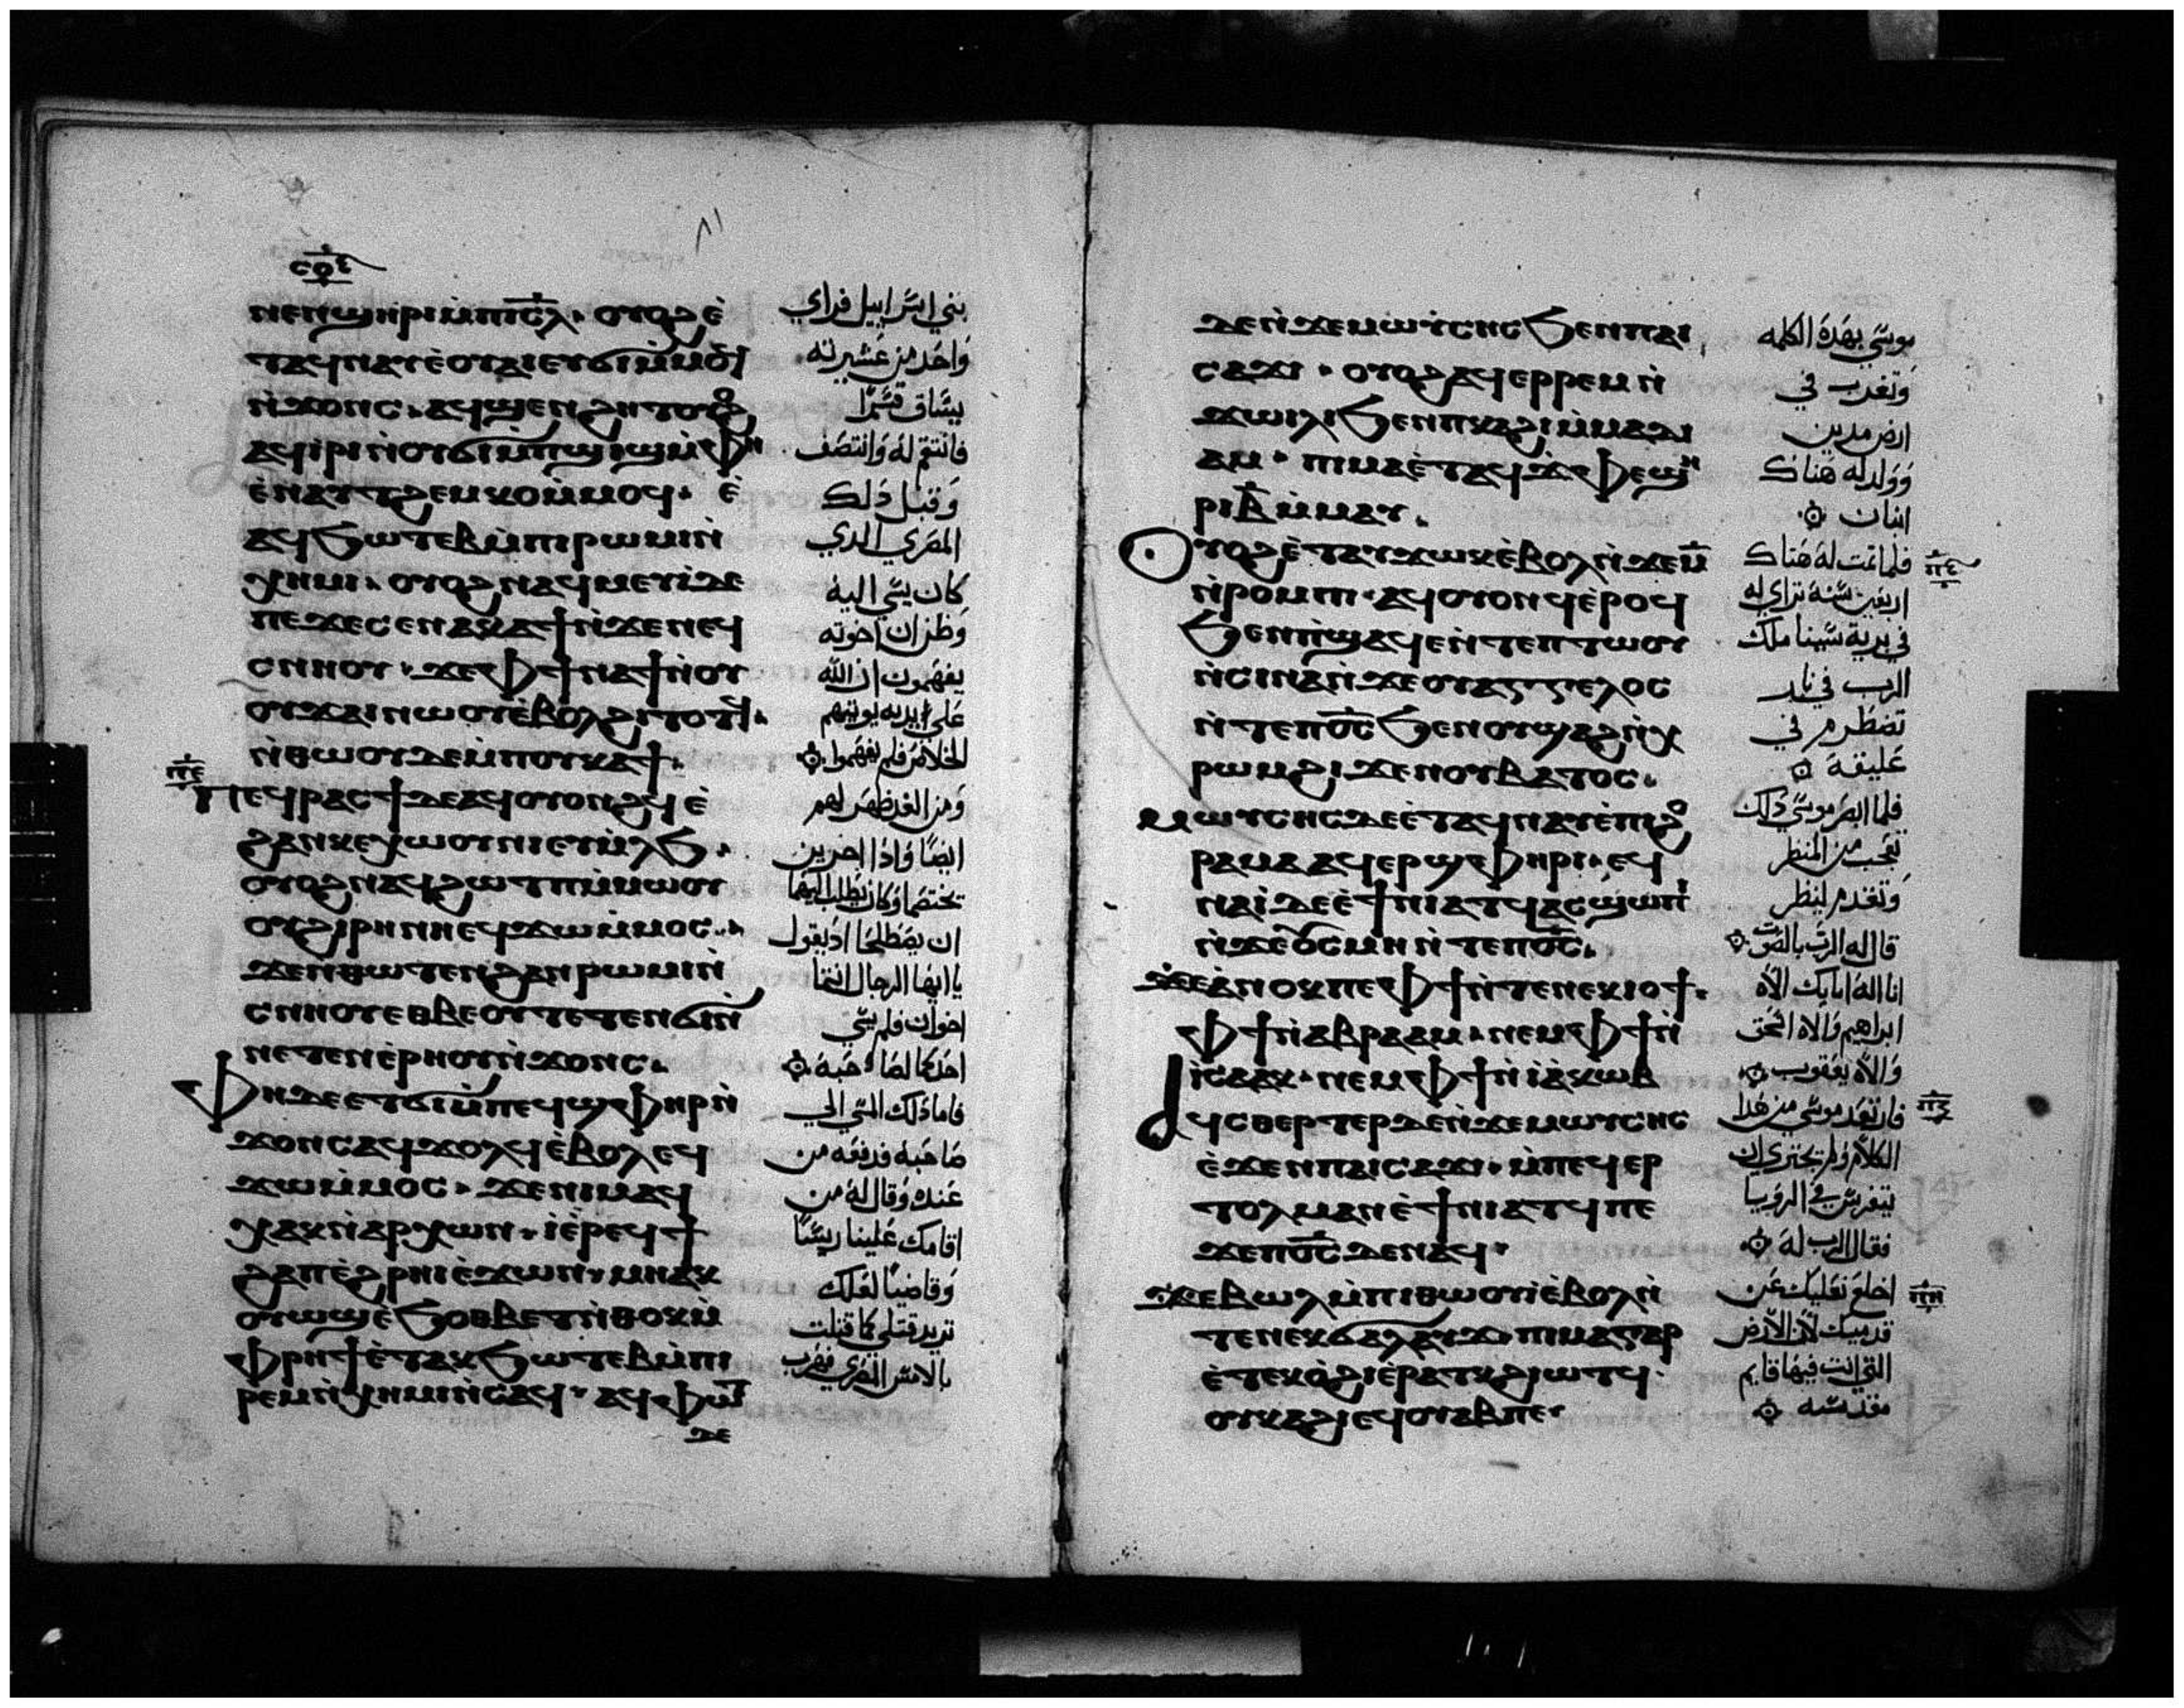 ⲥⲟⲋ
ⲛⲉⲛϣⲏⲣⲓ ⲙ̀ⲡⲓⲥ̅ⲗ̅. ⲟⲩⲟϩ ⲉ̀
ⲧⲁϥⲛⲁⲩ ⲉ̀ⲟⲩⲁⲓ ⲉⲩϭⲓ ⲙ̀ⲙⲟϥ
ⲛ̀ϫⲟⲛⲥ. ⲁϥϣⲉⲛϩⲏⲧ ⲟⲩⲟϩ
ⲁϥⲓ̀ⲣⲓ ⲛ̀ⲟⲩϭⲓⲙ̀ⲡϣⲓϣ ⲙ̀ⲫⲏ
ⲉ̀ⲛⲁⲩⲧϩⲉⲙⲕⲟ ⲙ̀ⲙⲟϥ. ⲉ̀
ⲁϥϧⲱⲧⲉⲃ ⲙ̀ⲡⲓⲣⲱⲙⲓ ⲛ̀
ⲭⲏⲙⲓ. ⲟⲩⲟϩ ⲛⲁϥⲙⲉⲩⲓ ⲇⲉ
ⲡⲉ ϫⲉ ⲥⲉⲛⲁⲕⲁϯ ⲛ̀ϫⲉ ⲛⲉϥ
ⲥⲛⲏⲟⲩ. ϫⲉ ⲫϯ ⲛⲁϯ ⲛ̀ⲟⲩ
ⲟⲩϫⲁⲓ ⲛⲱⲟⲩ ⲉ̀ⲃⲟⲗϩⲓⲧⲟⲧϥ.
ⲛ̀ⲑⲱⲟⲩ ⲇⲉ ⲙ̀ⲡⲟⲩⲕⲁϯ.
ⲡⲉ
ⲡⲉϥⲣⲁⲥϯ ⲇⲉ ⲁϥⲟⲩⲟⲛϩϥ ⲉ̀
ϩⲁⲛⲕⲉⲭⲱⲟⲩⲛⲓ ⲉⲩⲙ̀ⲗϧ.
ⲟⲩⲟϩ ⲛⲁϥϩⲱⲧⲡ ⲙ̀ⲙⲱⲟⲩ
ⲟⲩϩⲓⲣⲏⲛⲏ ⲉϥϫⲱ ⲙ̀ⲙⲟⲥ.
ϫⲉ ⲛⲑⲱⲧⲉⲛ ϩⲁⲛⲣⲱⲙⲓ ⲛ̀
ⲥⲛⲏⲟⲩ ⲉⲑⲃⲉⲟⲩ ⲧⲉⲧⲉⲛϭⲓ ⲛ̀
ⲛⲉⲧⲉⲛⲉ̀ⲣⲏⲟⲩ ⲛ̀ϫⲟⲛⲥ.
ⲫⲏ ⲇⲉ ⲉⲧϭⲓ ⲙ̀ⲡⲉϥϣⲫⲏⲣ ⲛ̀
ϫⲟⲛⲥ ⲁϥϫⲟⲗϥ ⲉ̀ⲃⲟⲗ ⲉϥ
ϫⲱ ⲙ̀ⲙⲟⲥ. ϫⲉ ⲛⲓⲙ ⲁϥ
ⲭⲁⲕ ⲛ̀ⲁⲣⲭⲱⲛ. ⲓⲉ̀ ⲣⲉϥϯ
ϩⲁⲡ ⲉ̀ϩⲣⲏⲓ ⲉ̀ϫⲱⲛ. ⲙⲏ ⲁⲕ
ⲟⲩⲱϣ ⲉ̀ϧⲟⲑⲃⲉⲧ ⲛ̀ⲑⲟⲕ ⲙ̀
ⲫⲣⲏϯ ⲉ̀ⲧⲁⲕϧⲱⲧⲉⲃ ⲙ̀ⲡⲓ
ⲣⲉⲙⲛ̀ⲭⲏⲙⲓ ⲛ̀ⲥⲁϥ. ⲁϥⲫⲱⲧ
ⲇⲉ
بني اسراييل فراي
واحد من عشيرته
يساق قسرا
فانتقم له وانتصف
وقبل ذلك
المصري الدي
كان يسي اليه
وظن ان اخوته
يفهمون ان الله
علي يديه يوتيهم
الخلاص فلم يفهموا
ومن الغد ظهر لهم
ايضا واذا اخرين
تختصما وكان يطلب اليهما
ان يصطلحا اذ يقول
يا ايها الرجال انتما
اخوان فلم يسي
احدكما لصاحبه
فاما ذلك المسي الي
صاحبه فدفعه من
عنده وقال له من
اقامك علينا ريسا
وقاضيا لعلك
تريد قتلي كما قتلت
بالامس المصري فهرب
ⲇⲉ ⲛ̀ϫⲉ ⲙⲱⲩⲥⲏⲥ ϧⲉⲛ ⲡⲁⲓ
ⲥⲁϫⲓ. ⲟⲩⲟϩ ⲁϥⲉⲣⲣⲉⲙ ⲛ̀
ϫⲱⲓⲗⲓ ϧⲉⲛ ⲡⲕⲁϩⲓ ⲙ̀ⲙⲁⲇⲓ
ⲁⲙ. ⲡⲓⲙⲁ ⲉ̀ⲧⲁϥϫ̀ⲫⲉ ϣⲏ
ⲣⲓ ⲃ̅ ⲙ̀ⲙⲁⲩ.
ⲟⲩⲟϩ ⲉ̀ⲧⲁⲩϫⲱⲕ ⲉ̀ⲃⲟⲗ ⲛ̀ϫⲉ ⲙ̅
ⲛ̀ⲣⲟⲙⲡⲓ. ⲁϥⲟⲩⲟⲛϥ ⲉ̀ⲣⲟϥ
ϧⲉⲛ ⲡ̀ϣⲁϥⲉ ⲛ̀ⲧⲉ ⲡⲧⲱⲟⲩ
ⲛ̀ⲥⲓⲛⲁ ⲛ̀ϫⲉ ⲟⲩⲁⲅⲅⲉⲗⲟⲥ
ⲛ̀ⲧⲉ ⲡⲟ̅ⲥ̅ ϧⲉⲛ ⲟⲩϣⲁϩ ⲛ̀ⲭ
ⲣⲱⲙ ϩⲓϫⲉⲛ ⲟⲩⲃⲁⲧⲟⲥ.
ⲙⲱⲩⲥⲏⲥ ⲇⲉ ⲉ̀ⲧⲁϥⲛⲁⲩ ⲉ̀ⲡⲓϩⲟ
ⲣⲁⲙⲁ ⲁϥⲉⲣϣⲫⲏⲣⲓ. ⲉϥ
ⲛⲁⲓ̀ ⲇⲉ ⲉ̀ϯⲛⲓⲁⲧϥ ⲁⲥϣⲱⲡⲓ
ⲛ̀ϫⲉ ⲟⲩⲥⲙⲏ ⲛ̀ⲧⲉ ⲡⲟ̅ⲥ̅.
ϫⲉ ⲁ̀ⲛⲟⲕ ⲡⲉ ⲫϯ ⲛ̀ⲧⲉ ⲛⲉⲕⲓⲟϯ.
ⲫϯ ⲛ̀ⲁⲃⲣⲁⲁⲙ. ⲛⲉⲙ ⲫϯ ⲛ̀
ⲓ̀ⲥⲁⲁⲕ. ⲛⲉⲙ ⲫϯ ⲛ̀ⲓⲁ̀ⲕⲱⲃ
ⲁϥⲥⲑⲉⲣⲧⲉⲣ ⲇⲉ ⲛ̀ϫⲉ ⲙⲱⲩⲥⲏⲥ
ⲉ̀ϫⲉⲛ ⲡⲁⲓⲥⲁϫⲓ. ⲙ̀ⲡⲉϥⲉⲣ
ⲧⲟⲗⲙⲁⲛ ⲉ̀ϯⲛⲓⲁⲧϥ ⲡⲉ
ϫⲉ ⲡⲟ̅ⲥ̅ ⲇⲉ ⲛⲁϥ.
ϫⲉ ⲃⲱⲗ ⲙ̀ⲡⲓⲑⲱⲟⲩⲓ̀ ⲉ̀ⲃⲟⲗ ⲛ̀
ⲧⲉ ⲛⲉⲕϭⲁⲗⲁⲩϫ. ⲡⲓⲙⲁ ⲅⲁⲣ
ⲉ̀ⲧⲉⲕⲟ̀ϩⲓ ⲉ̀ⲣⲁⲧⲕ ϩⲓⲱⲧϥ.
ⲟⲩⲕⲁϩⲓ ⲉϥⲟⲩⲁⲃ ⲡⲉ.
موسي بهذه الكلمه
وتغرب في
ارض مدين
وولد له هناك
ابنان
فلما تمت له هناك
ⲡⲋ
اربعين سنة تراي له
في برية سينا ملاك
الرب في نار
تضطرم في
عليقة
فلما ابصر موسي ذلك
تعجب من المنظر
وتقدم لينظر
قال له الرب بالصوت
انا اله ابايك الاه
ابراهيم والاه اسحق
والاه يعقوب
فارتعد موسي من هذا
ⲡⲍ
الكلام ولم يجتري ان
يتفرس في الرويا
فقال الرب له
اخلع نعليك عن
ⲡⲏ
قدميك لان الارض
التي انت فيها قايم
مقدسه